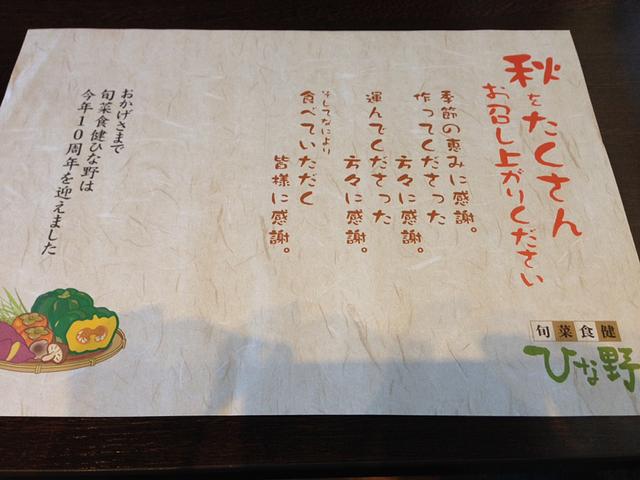 秋をたくさん
お召し上がりください
季節の恵みに感謝。
作ってくださった
方々に感謝。
運んでくださった
方々に感謝。
そしてなにより
食べていただく
皆様に感謝。
おかげさまで
旬菜食健ひな野は
今年10周年を迎えました
旬菜食健
ひな野